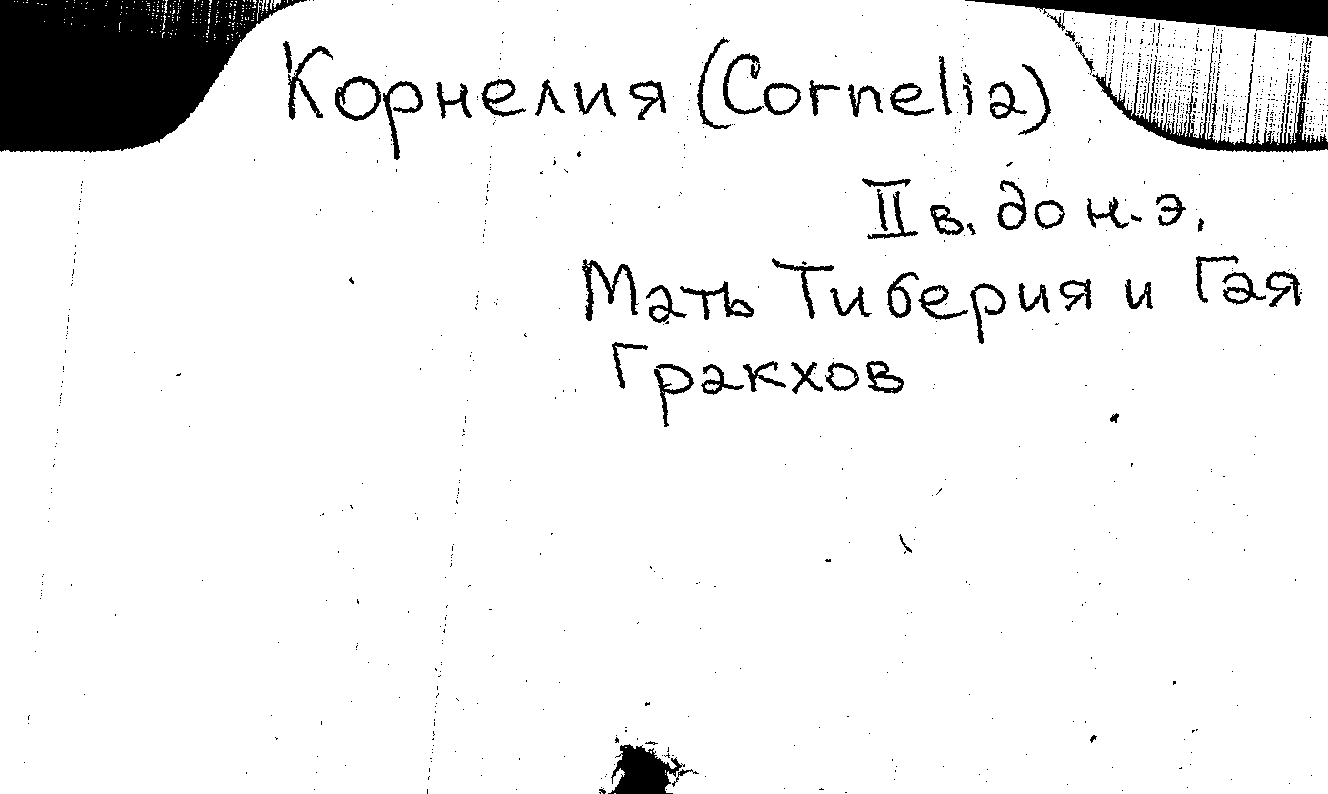 Корнелия (Cornelia)
II в. до н.э.
Мать Тиберия и Гая
Гракхов